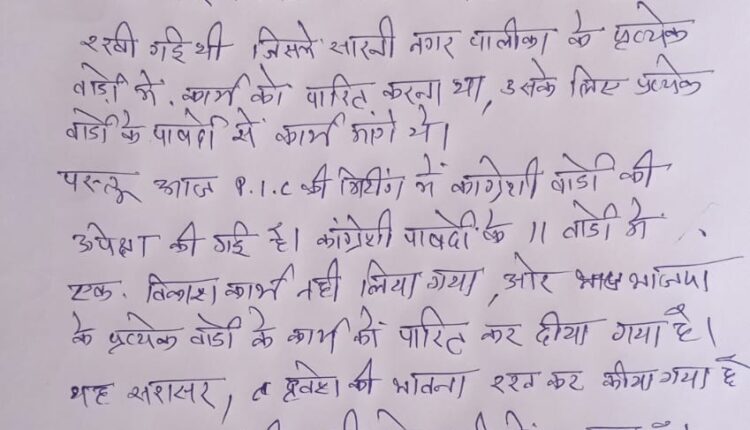 रखी गई थी जिसमे सारनी नगर पालीका के प्रत्येक
वार्डो में. कार्य को पारित करना था, उसके लिए प्रत्येक
वार्डो के पाषदो से कार्य मांगे थे।
परन्तू आज P.I.C की मिटींग में कांग्रेशी वार्डो की
उपेक्षा की गई है। कांग्रेशी पाषदो के 11 वार्डो में
एक. विकाश कार्य नही लिया गया, और भाजपा
के प्रत्येक वार्डो के कार्य को पारित कर दीया गया है।
यह सरासर, व द्वेश की भावना रख कर कीया गया है